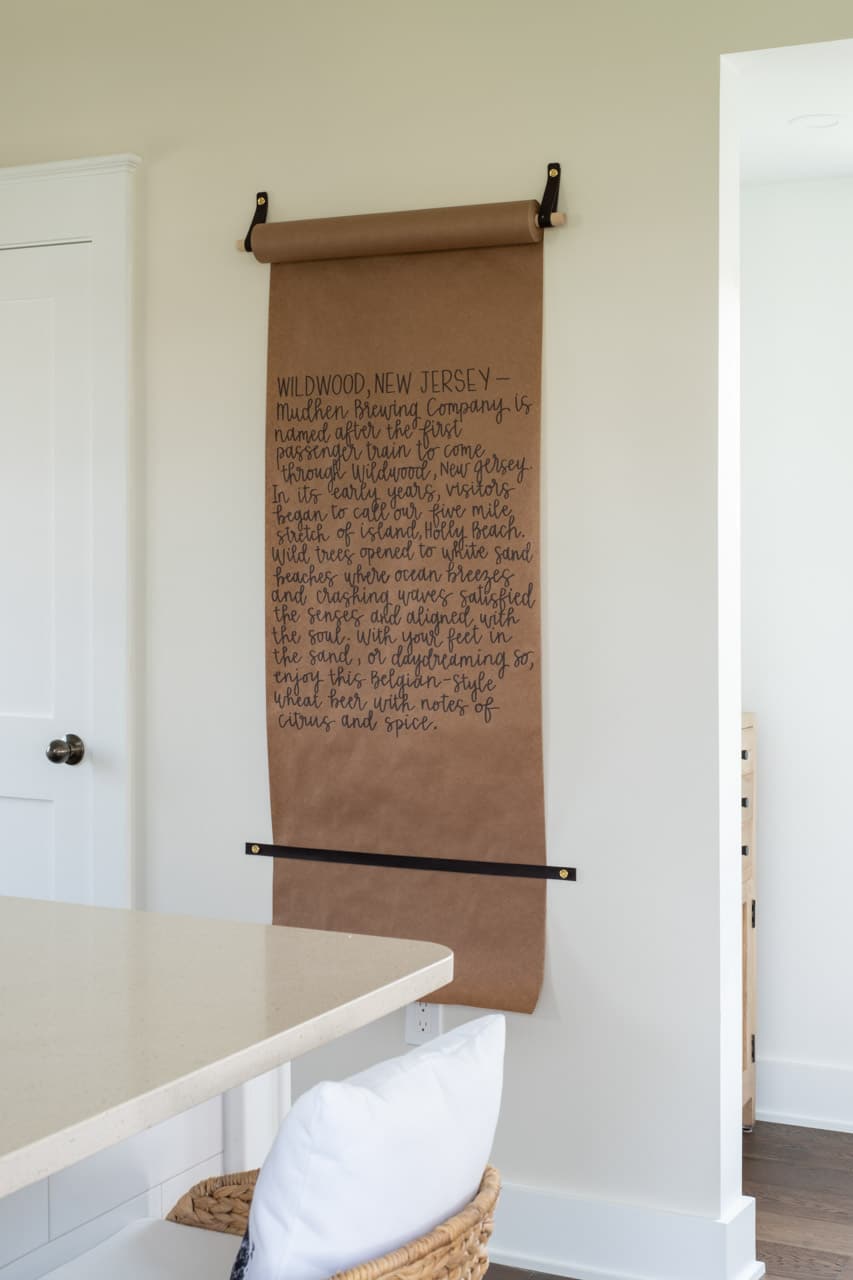 WILDWOOD, NEW JERSEY —
Mudhen Brewing Company is
named after the first
passenger train to come
through Wildwood, New Jersey.
In its early years, visitors
began to call our five mile
stretch of island, Holly Beach.
Wild trees opened to white sand
beaches where ocean breezes
and crashing waves satisfied
the senses and aligned with
the soul. With your feet in
the sand, or daydreaming so,
enjoy this Belgian-Style
wheat beer with notes of
citrus and spice.